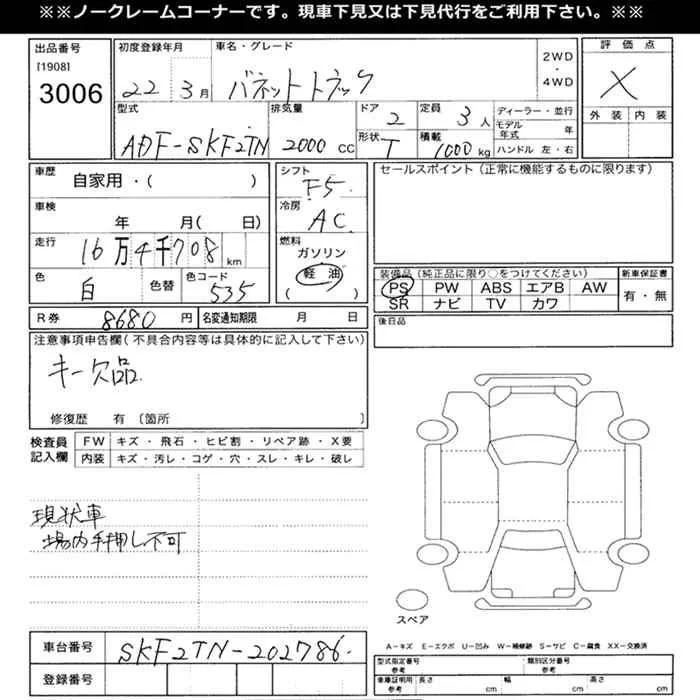 ※※ノークレームコーナーです。現車下見又は下見代行をご利用下さい。※※
出品番号
[1908]
3006
初度登録年月
22年 3月
車名・グレード
バネットトラック
2WD
・
4WD
評価点
X
外装 内装
型式
ADF-SKF2TN
排気量
2000 CC
ドア
2
形状
T
定員
3人
積載
1000 kg
ディーラー・並行
モデル年式 年
ハンドル 左・右
車歴
自家用・( )
車検
年 月( 日)
走行
16万4千708 km
色
白
色替
色コード
535
シフト
F5
冷房
AC
燃料
ガソリン
軽油
( )
セールスポイント(正常に機能するものに限ります)
装備品(純正品に限り○をつけてください)
PS PW ABS エアB AW
SR ナビ TV カワ
新車保証書
有・無
R券 8680 円
名変通知期限 月 日
後日品
注意事項申告欄(不具合内容等は具体的に記入して下さい)
キー欠品.
修復歴 有 〔箇所 〕
検査員
記入欄
FW キズ・飛石・ヒビ割・リペア跡・X要
内装 キズ・汚レ・コゲ・穴・スレ・キレ・破レ
現状車
場内手押し不可
スペア
A-キズ E-エクボ U-凹み W-補修跡 S-サビ C-腐食 XX-交換済
車台番号
SKF2TN-202786.
登録番号
型式指定番号
参考
類別区分番号
参考
車庫証明用
参考
長さ cm
幅 cm
高さ cm